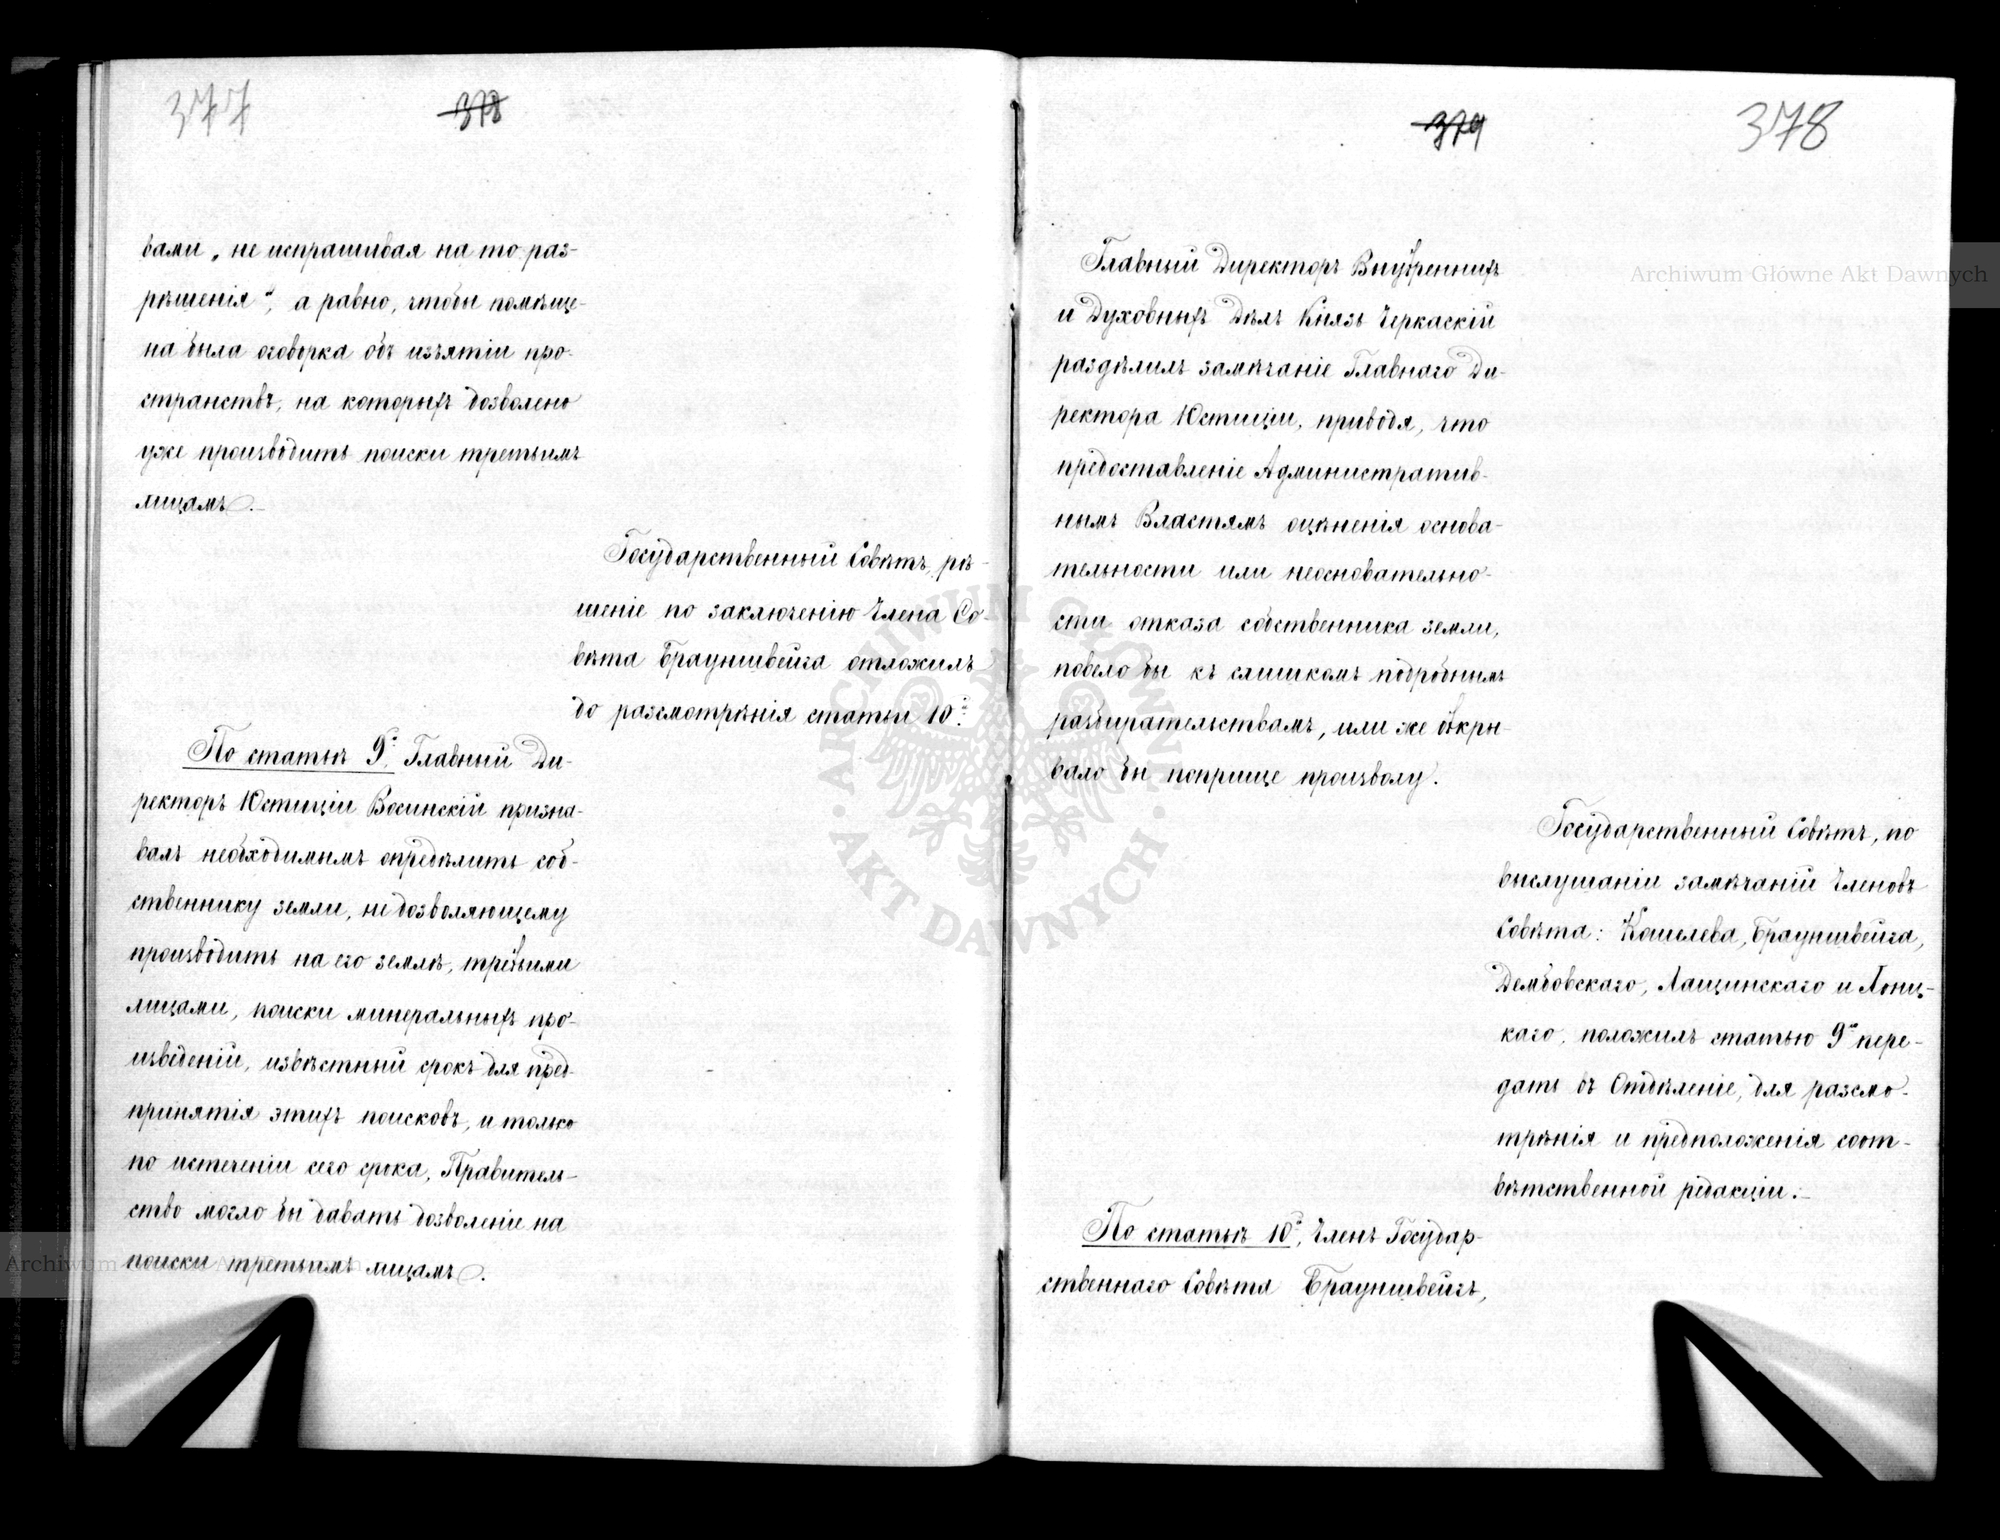 377
378
вами „не испрашивая на то раз-
рѣшенія“, а равно, чтобы помѣще-
на была оговорка объ изъятіи про-
странствъ, на которыхъ дозволено
уже производить поиски третьимъ
лицамъ.
Государственный Совѣтъ, рѣ-
шеніе по заключенію Члена Со-
вѣта Брауншвейга отложилъ
до разсмотрѣнія статьи 10й.
По статьѣ 9й. Главный Ди-
ректоръ Юстиціи Восинскій призна-
валъ необходимымъ опредѣлить соб-
ственнику земли, не дозволяющему
производить на его землѣ, третьими
лицами, поиски минеральныхъ про-
изведеній, извѣстный срокъ для пред-
принятія этихъ поисковъ, и только
по истеченіи сего срока, Правитель-
ство могло бы давать дозволеніе на
поиски третьимъ лицамъ.
379
378
Главный Директоръ Внутреннихъ
и Духовныхъ Дѣлъ Князь Черкаскій
раздѣлилъ замѣчаніе Главнаго Ди-
ректора Юстиціи, приводя, что
предоставленіе Административ-
нымъ Властямъ оцѣненія основа-
тельности или неосновательно-
сти отказа собственника земли,
повело бы къ слишкомъ подробнымъ
разбирательствамъ, или же откры-
вало бы поприще произволу.
Государственный Совѣтъ, по
выслушаніи замѣчаній Членовъ
Совѣта: Кошелева, Брауншвейга,
Дембовскаго, Лащинскаго и Лонц-
каго, положилъ статью 9ю пере-
дать въ Отдѣленіе, для разсмо-
трѣнія и предположенія соот-
вѣтственной редакціи.
По статьѣ 10й, Членъ Государ-
ственнаго Совѣта Брауншвейгъ,
Archiwum Główne Akt Dawnych
ARCHIWUM GŁÓWNE AKT DAWNYCH
Archiwum Główne Akt Dawnych